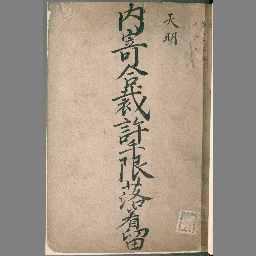 天明
内寄合裁許限落着留